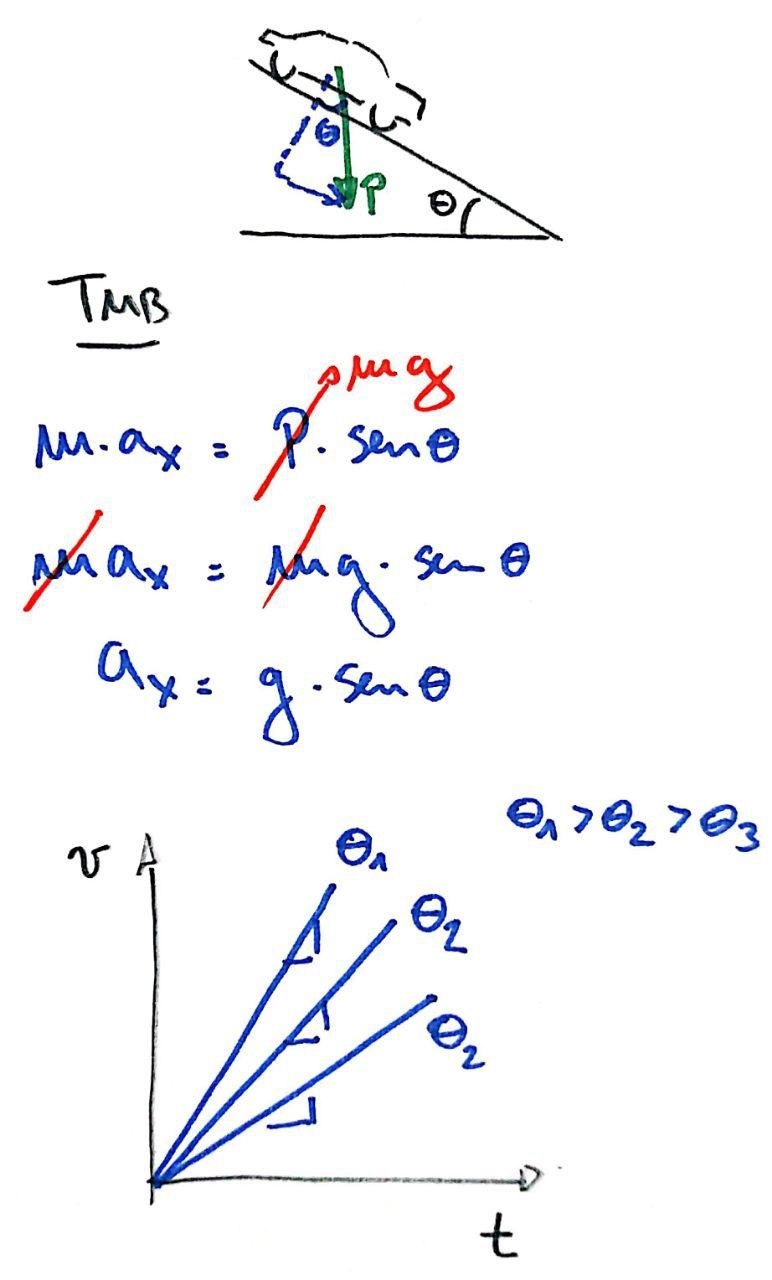 θ
P
θ
TMB
mg
m·aₓ = P·senθ
m aₓ = m g·sen θ
aₓ = g·senθ
θ₁ > θ₂ > θ₃
v
θ₁
θ₂
θ₂
t